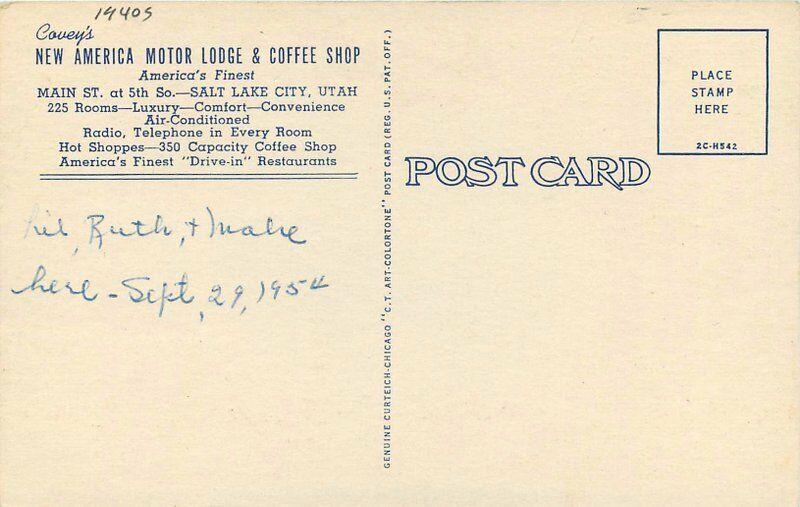 1940s
Covey's
NEW AMERICA MOTOR LODGE & COFFEE SHOP
America's Finest
MAIN ST. at 5th So.—SALT LAKE CITY, UTAH
225 Rooms—Luxury—Comfort—Convenience
Air-Conditioned
Radio, Telephone in Every Room
Hot Shoppes—350 Capacity Coffee Shop
America's Finest "Drive-in" Restaurants
Ruth, +
here - Sept, 29, 1954
GENUINE CURTEICH-CHICAGO "C.T. ART-COLORTONE" POST CARD (REG. U.S. PAT. OFF.)
POST CARD
PLACE
STAMP
HERE
2C-H542